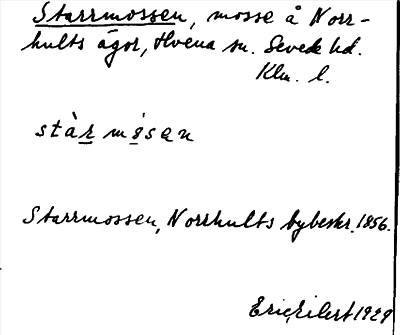 Starrmossen, mosse å Norr-
hults ägor, Hvena sn. Sevede hd.
Klm. l.
stàr mósen
Starrmossen, Norrhults bybeskr. 1856.
Eric Eilert 1929